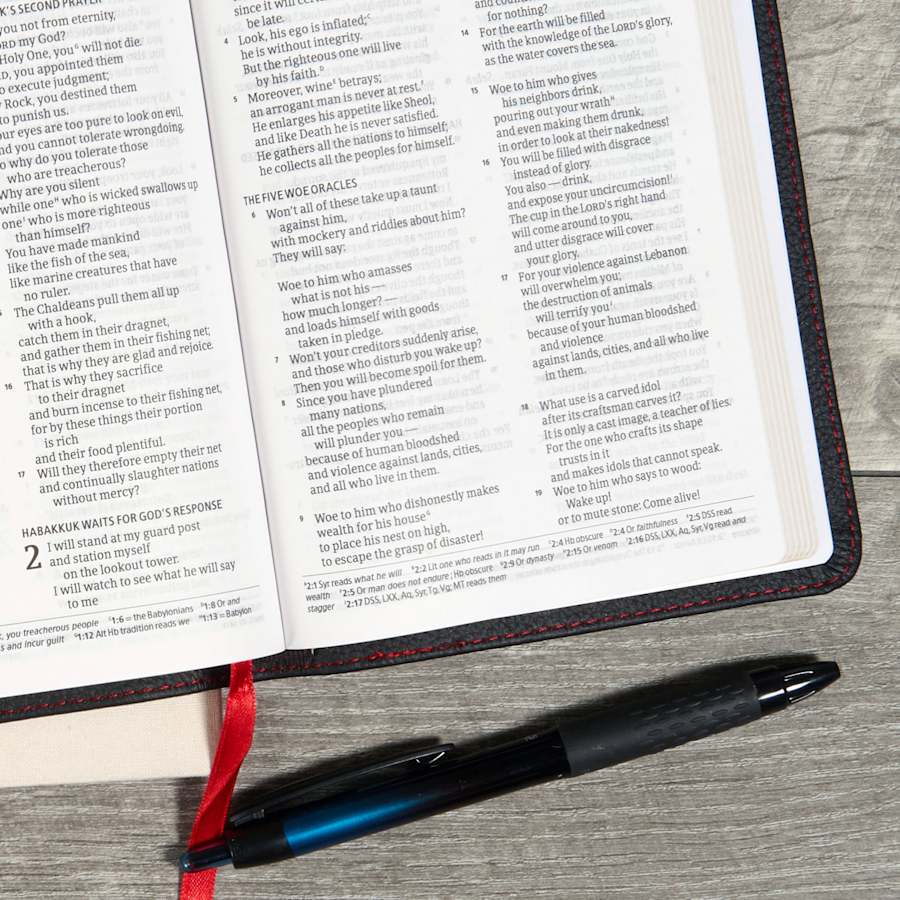 K'S SECOND PRAYER
you not from eternity,
ORD my God?
Holy One, you will not die.
D, you appointed them
o execute judgment;
Rock, you destined them
to punish us.
ur eyes are too pure to look on evil,
nd you cannot tolerate wrongdoing.
o why do you tolerate those
who are treacherous?
Why are you silent
while one who is wicked swallows up
one who is more righteous
than himself?
You have made mankind
like the fish of the sea,
like marine creatures that have
no ruler.
The Chaldeans pull them all up
with a hook,
catch them in their dragnet,
and gather them in their fishing net;
that is why they are glad and rejoice.
16 That is why they sacrifice
to their dragnet
and burn incense to their fishing net,
for by these things their portion
is rich
and their food plentiful.
17 Will they therefore empty their net
and continually slaughter nations
without mercy?
HABAKKUK WAITS FOR GOD'S RESPONSE
2 I will stand at my guard post
and station myself
on the lookout tower.
I will watch to see what he will say
to me
, you treacherous people 1:6 = the Babylonians 1:8 Or and
s and incur guilt 1:12 Alt Hb tradition reads we 1:13 = Babylon
since it will
be late.
4 Look, his ego is inflated;
he is without integrity.
But the righteous one will live
by his faith.
5 Moreover, wine betrays;
an arrogant man is never at rest.
He enlarges his appetite like Sheol,
and like Death he is never satisfied.
He gathers all the nations to himself;
he collects all the peoples for himself.
THE FIVE WOE ORACLES
6 Won't all of these take up a taunt
against him,
with mockery and riddles about him?
They will say:
Woe to him who amasses
what is not his —
how much longer? —
and loads himself with goods
taken in pledge.
7 Won't your creditors suddenly arise,
and those who disturb you wake up?
Then you will become spoil for them.
8 Since you have plundered
many nations,
all the peoples who remain
will plunder you —
because of human bloodshed
and violence against lands, cities,
and all who live in them.
9 Woe to him who dishonestly makes
wealth for his house
to place his nest on high,
to escape the grasp of disaster!
for nothing?
14 For the earth will be filled
with the knowledge of the LORD's glory,
as the water covers the sea.
15 Woe to him who gives
his neighbors drink,
pouring out your wrath
and even making them drunk,
in order to look at their nakedness!
16 You will be filled with disgrace
instead of glory.
You also — drink,
and expose your uncircumcision!
The cup in the LORD's right hand
will come around to you,
and utter disgrace will cover
your glory.
17 For your violence against Lebanon
will overwhelm you;
the destruction of animals
will terrify you
because of your human bloodshed
and violence
against lands, cities, and all who live
in them.
18 What use is a carved idol
after its craftsman carves it?
It is only a cast image, a teacher of lies.
For the one who crafts its shape
trusts in it
and makes idols that cannot speak.
19 Woe to him who says to wood:
Wake up!
or to mute stone: Come alive!
2:1 Syr reads what he will 2:2 Lit one who reads in it may run 2:4 Hb obscure 2:4 Or faithfulness 2:5 DSS read
wealth 2:5 Or man does not endure; Hb obscure 2:9 Or dynasty 2:15 Or venom 2:16 DSS, LXX, Aq, Syr, Vg read and
stagger 2:17 DSS, LXX, Aq, Syr, Tg, Vg; MT reads them